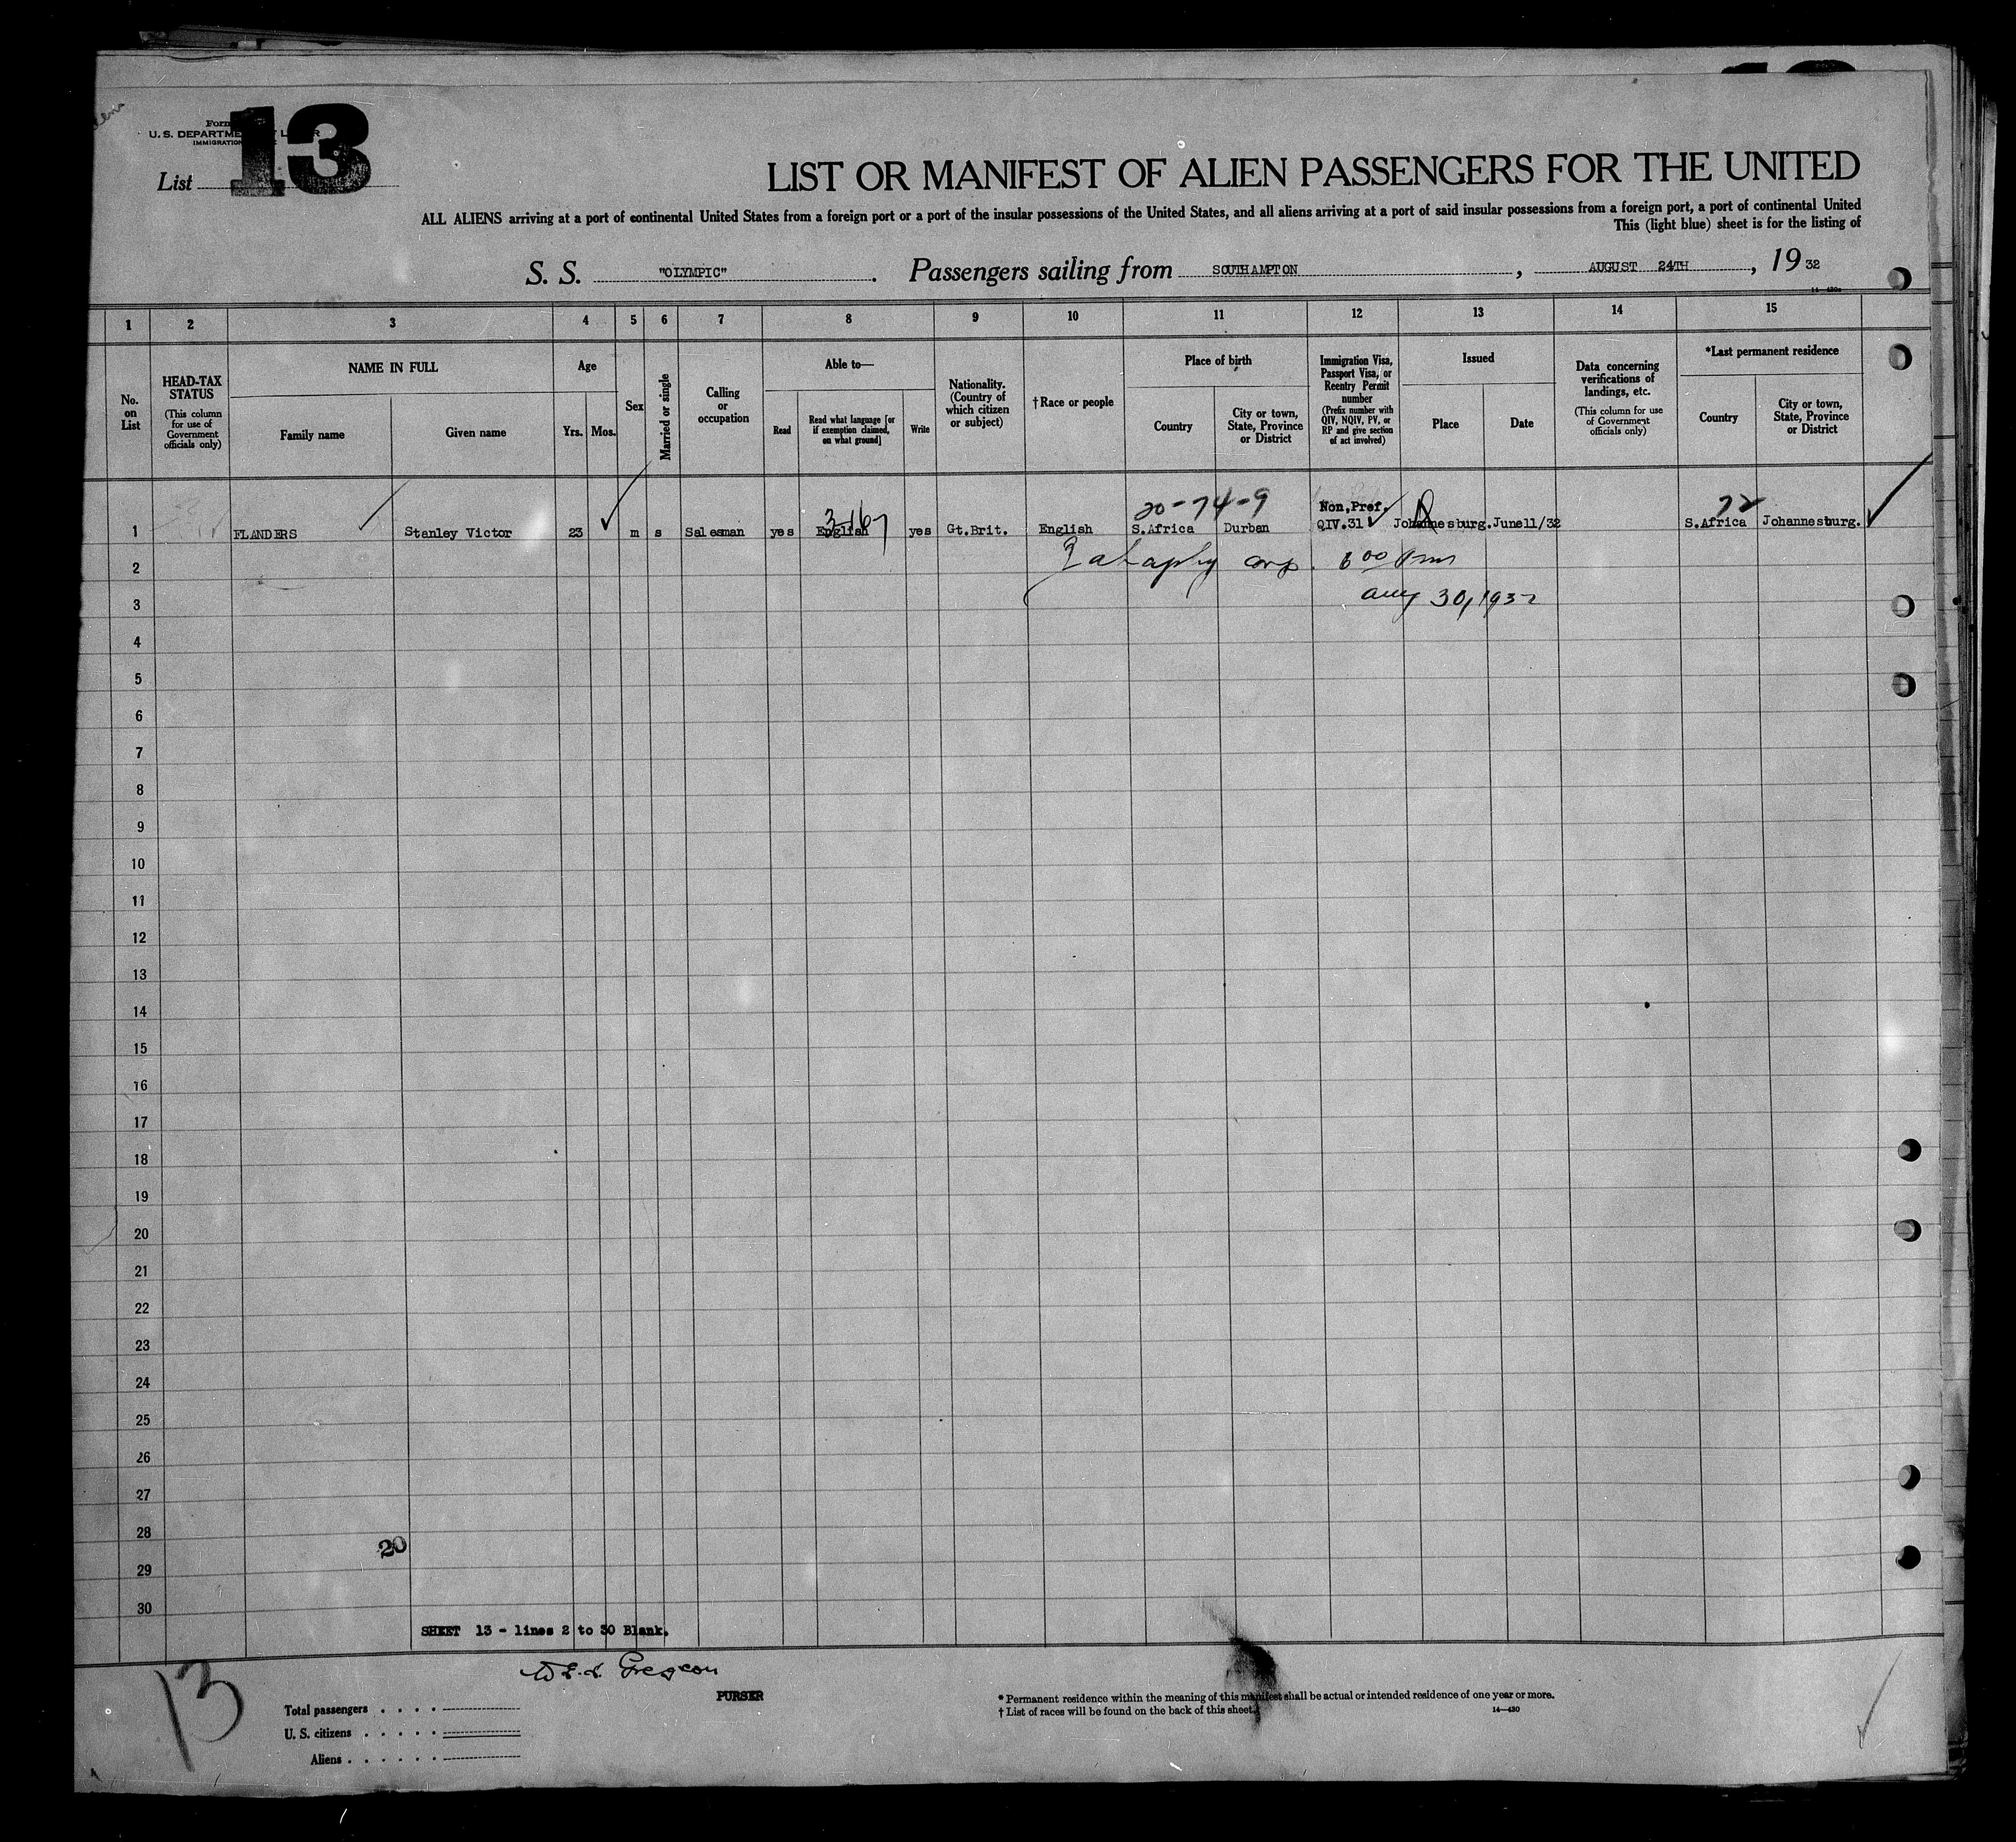 13
Form
U. S. DEPARTME LABOR
IMMIGRATION
List
LIST OR MANIFEST OF ALIEN PASSENGERS FOR THE UNITED
ALL ALIENS arriving at a port of continental United States from a foreign port or a port of the insular possessions of the United States, and all aliens arriving at a port of said insular possessions from a foreign port, a port of continental United
This (light blue) sheet is for the listing of
S. S. "OLYMPIC". Passengers sailing from SOUTHAMPTON, AUGUST 24TH, 19 32
1 2 3 4 5 6 7 8 9 10 11 12 13 14 15
No. on List
HEAD-TAX STATUS
(This column for use of Government officials only)
NAME IN FULL
Family name
Given name
Age
Yrs.
Mos.
Sex
Married or single
Calling or occupation
Able to—
Read
Read what language [or if exemption claimed, on what ground]
Write
Nationality. (Country of which citizen or subject)
†Race or people
Place of birth
Country
City or town, State, Province or District
Immigration Visa, Passport Visa, or Reentry Permit number
(Prefix number with QIV, NQIV, PV, or RP and give section of act involved)
Issued
Place
Date
Data concerning verifications of landings, etc.
(This column for use of Government officials only)
*Last permanent residence
Country
City or town, State, Province or District
20-74-9
Non,Pref.
72
1 FLANDERS Stanley Victor 23 m s Salesman yes English yes Gt.Brit. English S.Africa Durban QIV.31 Johannesburg. June11/32 S.Africa Johannesburg.
2
3 Aug 30, 1932
4
5
6
7
8
9
10
11
12
13
14
15
16
17
18
19
20
21
22
23
24
25
26
27
28
20
29
30
SHEET 13 - lines 2 to 30 Blank.
13
PURSER
Total passengers . . . .
U. S. citizens . . . . .
Aliens . . . . . .
* Permanent residence within the meaning of this manifest shall be actual or intended residence of one year or more.
† List of races will be found on the back of this sheet.
14—430